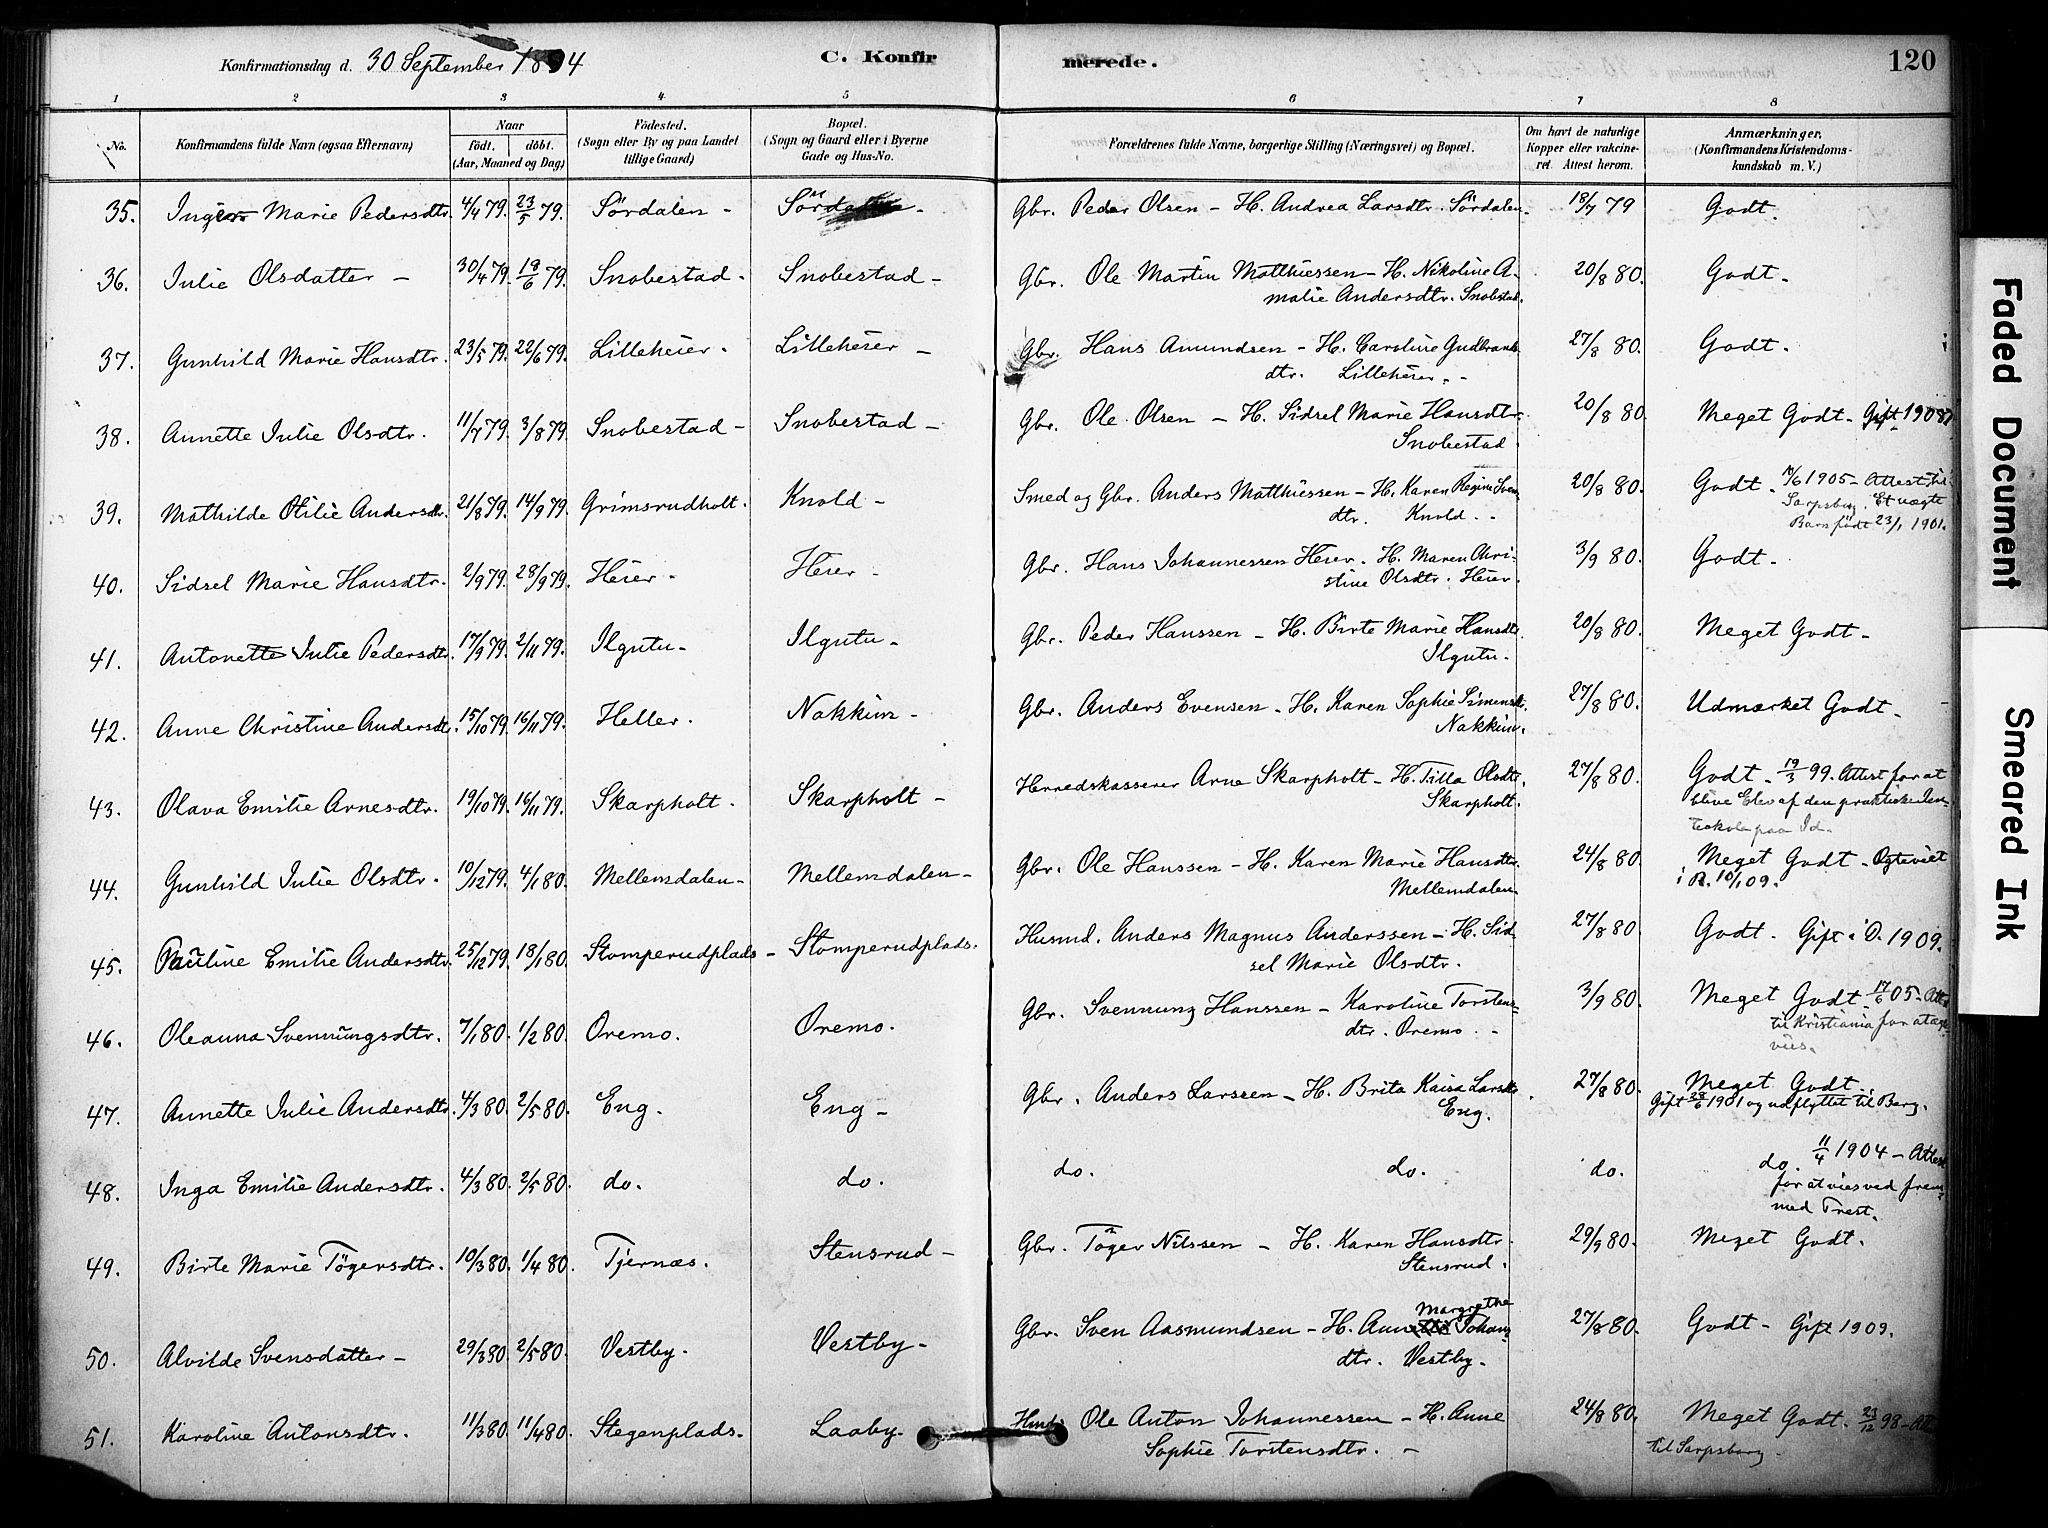 Konfirmationsdag d. 30 September 1894 C. Konfirmerede. 120
1 2 3 4 5 6 7 8
No. Konfirmandens fulde Navn (ogsaa Efternavn) Naar födt. döbt. (Aar, Maaned og Dag) Födested. (Sogn eller By og paa Landet tillige Gaard) Bopæl. (Sogn og Gaard eller i Byerne Gade og Hus-No. Forældrenes fulde Navne, borgerlige Stilling (Næringsvei) og Bopæl. Om havt de naturlige Kopper eller vakcineret. Attest herom. Anmærkninger. (Konfirmandens Kristendomskundskab m. V.)
35. Marie Pedersdtr. 4/4 79. 23/5 79. Sördalen - Gbr. Peder Olsen - H. Andrea Larsdtr. Sördalen. 18/7 79 Godt.
36. Julie Olsdatter - 30/4 79. 19/6 79. Snobestad - Snobestad - Gbr. Ole Martin Matthiessen - H. Nikoline A-
malie Andersdtr. Snobestad. 20/8 80. Godt.
37. Gunhild Marie Hansdtr. 23/5 79. 22/6 79. Lilleheier. Lilleheier - Gbr. Hans Amundsen - H. Caroline Gudbrands
dtr. Lilleheier. - 27/8 80. Godt.
38. Annette Julie Olsdtr. 11/7 79. 3/8 79. Snobestad - Snobestad - Gbr. Ole Olsen - H. Sidsel Marie Hansdtr.
Snobestad. 20/8 80. Meget Godt - Gift 1908
39. Mathilde Otilie Andersdtr. 21/8 79. 14/9 79. Grimsrudholt. Knold - Smed og Gbr. Anders Matthiessen - H. Karen Regine Svens
dtr. Knold. - 20/8 80. Godt. 1905 - Attest til
Sarpsborg. Et uægte
Barn født 23/1 1901.
40. Sidsel Marie Hansdtr. 2/9 79. 28/9 79. Heier. Heier. Gbr. Hans Johannessen Heier. H. Maren Chri-
stine Olsdtr. Heier. 3/9 80. Godt.
41. Antonette Julie Pedersdtr. 17/9 79. 2/11 79. Ilgutu - Ilgutu - Gbr. Peder Hanssen - H. Birte Marie Hansdtr.
Ilgutu. 20/8 80. Meget Godt -
42. Anne Christine Andersdtr. 15/10 79. 16/11 79. Heller. Nakkim - Gbr. Anders Evensen - H. Karen Sophie Simensdtr.
Nakkim. 27/8 80. Udmærket Godt -
43. Olava Emilie Arnesdtr. 19/10 79. 16/11 79. Skarpholt. Skarpholt - Herredskasserer Arne Skarpholt - H. Tilla Olsdtr.
Skarpholt. 27/8 80. Godt - 19/3 99. Attest for at
blive Elev af den praktiske
paa Id.
44. Gunhild Julie Olsdtr. 10/12 79. 4/1 80. Mellemdalen - Mellemdalen - Gbr. Ole Hanssen - H. Karen Marie Hansdtr.
Mellemdalen. 24/8 80. Meget Godt - Egteviet
i R. 10/1 09.
45. Pauline Emilie Andersdtr. 25/12 79. 18/1 80. Stomperudplads - Stomperudplads. Husmd. Anders Magnus Anderssen - H. Sid-
sel Marie Olsdtr. 27/8 80. Godt. Gift i D. 1909.
46. Oleanna Svennungsdtr. 7/1 80. 1/2 80. Oremo. Oremo. Gbr. Svennung Hanssen - Karoline Torstens-
dtr. Oremo. - 3/9 80. Meget Godt - 17/6 05 - Attest
til Kristiania for at ægte-
vies.
47. Annette Julie Andersdtr. 4/3 80. 2/5 80. Eng. Eng - Gbr. Anders Larssen - H. Brita Kaisa Larsdtr.
Eng. 27/8 80. Meget Godt -
Gift 28/6 1901 og udflyttet til Berg.
48. Inga Emilie Andersdtr. 4/3 80. 2/5 80. do. do. do. do. do. do. 11/4 1904 - Attest
for at vies ved frem-
med Prest.
49. Birte Marie Tögersdtr. 10/3 80. 1/4 80. Tjernæs. Stensrud - Gbr. Töger Nilssen - H. Karen Hansdtr.
Stensrud. 29/9 80. Meget Godt.
50. Alvilde Svensdatter - 29/3 80. 2/5 80. Vestby. Vestby - Gbr. Sven Aasmundsen - H. Anne Margrethe Johans
dtr. Vestby. 27/8 80. Godt - Gift 1909.
51. Karoline Antonsdtr. 11/3 80. 11/4 80. Stegenplads. Laaby - Ole Anton Johannessen - H. Anne
Sophie Torstensdtr. - 24/8 80. Meget Godt. 23/12 98 - Att.
til Sarpsborg -
Faded Document
Smeared Ink